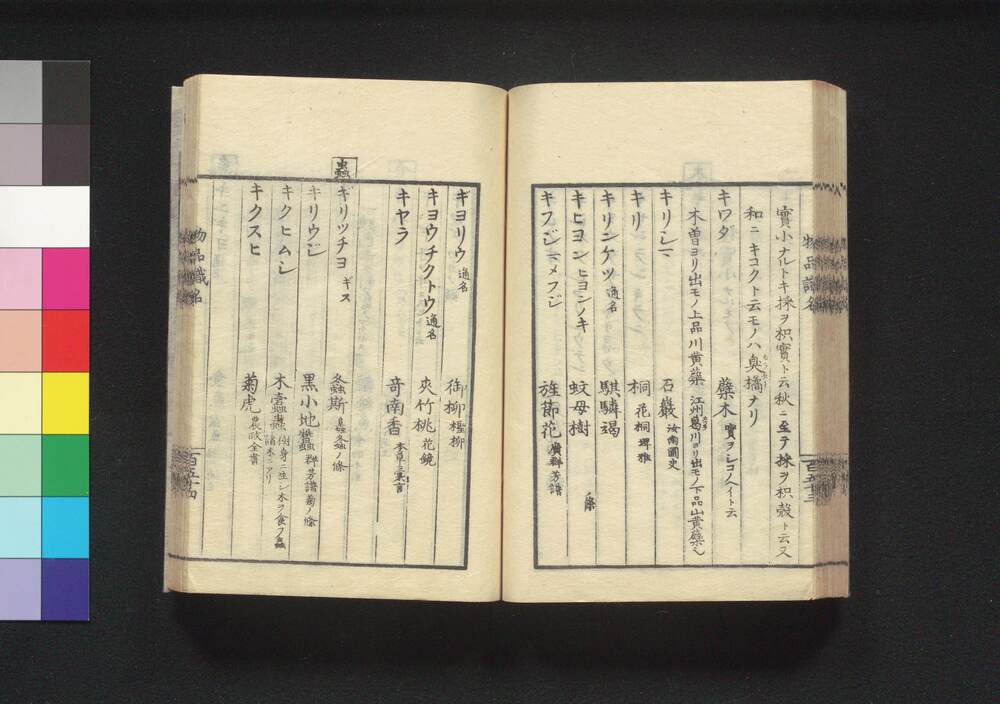 實小ナルトキ採ヲ枳實ト云秋ニ至テ採ヲ枳殻ト云又
和ニキコクト云モノハ臭橘ナリ
キワタ 蘗木 實ヲシコノヘイト云
木曽ヨリ出モノ上品川黄蘗 江州葛川ヨリ出モノ下品山黄蘗也
キリシマ 石巖 汝南圃史
キリ 桐 花桐 埤雅
キリンケツ 通名 騏驎竭
キヒヨン ヒヨンノキ 蚊母樹
キフジ マメフジ 旌節花 廣群芳譜
物品識名
百五十三
ギヨリウ 通名 御柳 檉柳
キヨウチクトウ 通名 夾竹桃 花鏡
キヤラ 奇南香 本草彙言
蟲
ギリツチヨ ギス 螽斯 𧒂螽ノ條
キリウジ 黒小地蠶 群芳譜菊ノ條
キクヒムシ 木蠹蟲 諸木ニアリ
キクスヒ 菊虎 農政全書
物品識名
百五十四